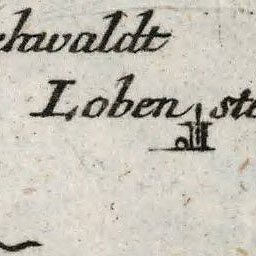 ehwaldt
Loben ste